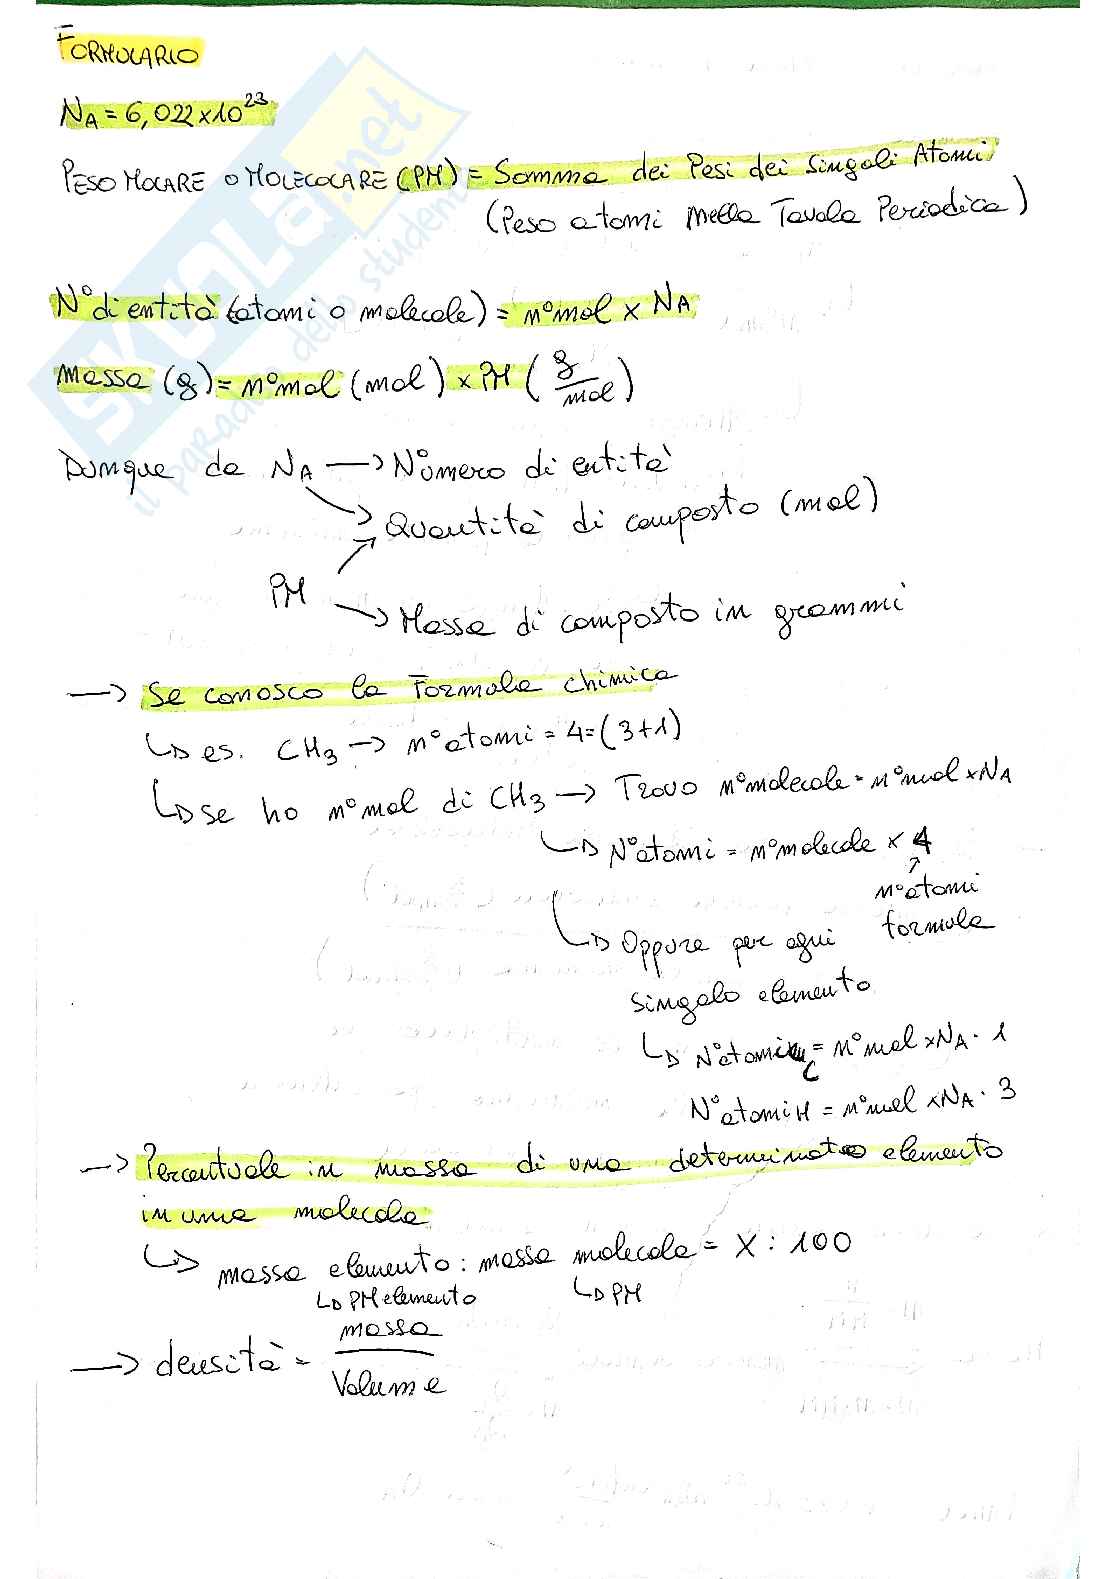 FORMULARIO
NA = 6,022 x 10^23
PESO MOLARE o MOLECOLARE (PM) = Somma dei Pesi dei Singoli Atomi
(Peso atomi nella Tavola Periodica)
N° di entità (atomi o molecole) = n°mol x NA
Massa (g) = n°mol (mol) x PM (g/mol)
Dunque da NA → Numero di entità
Quantità di composto (mol)
PM
Massa di composto in grammi
→ Se conosco la Formula chimica
↳ es. CH3 → n°atomi = 4 = (3+1)
↳ se ho n°mol di CH3 → Trovo n°molecole = n°mol x NA
↳ N°atomi = n°molecole x 4
n°atomi
formula
↳ Oppure per ogni
singolo elemento
↳ N°atomi C = n°mol x NA · 1
N°atomi H = n°mol x NA · 3
→ Percentuale in massa di uno determinato elemento
in una molecola
↳ massa elemento : massa molecola = X : 100
↳ PM elemento ↳ PM
→ densità = massa
Volume
SKUOLA.net
il paradiso dello studente